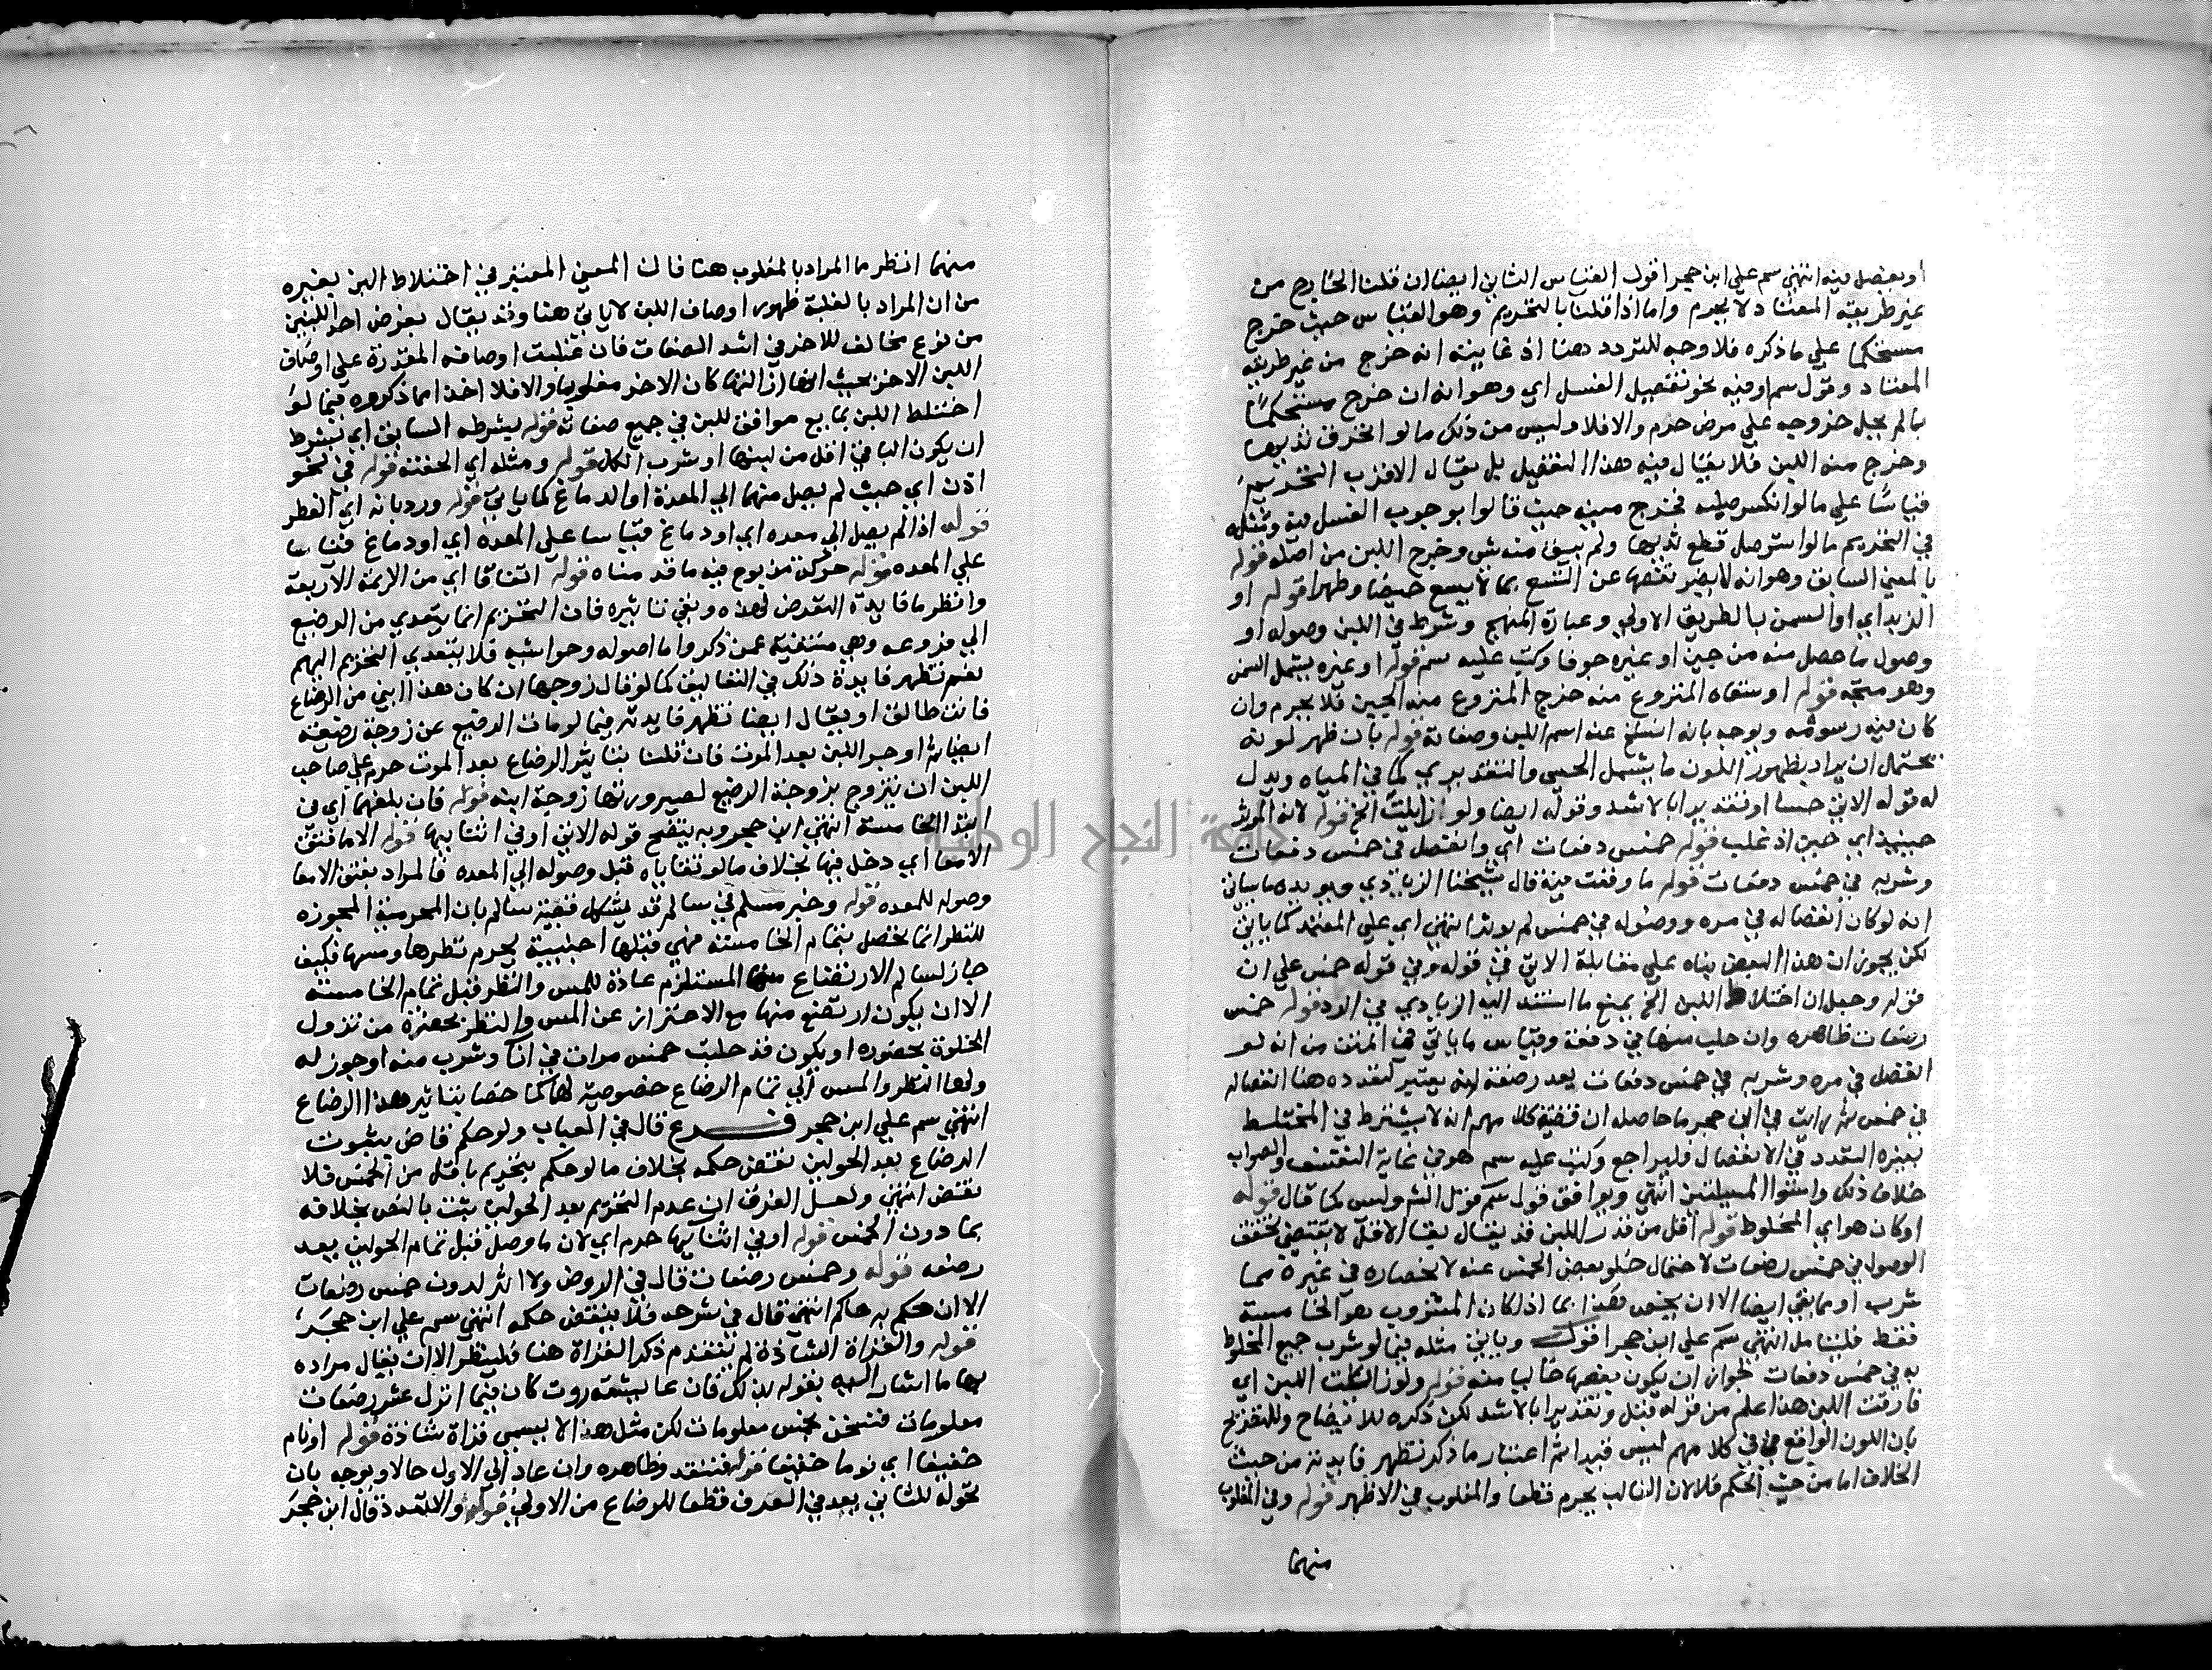 او يفصل فيه انتهى سم على ابن حجر اقول القياس الثاني ايضا ان قلنا الخارج من
غير طريقه المعتاد لا يحرم واما اذا قلنا بالتحريم وهو القياس حيث خرج
مستحكما على ما ذكره فلا وجه للتردد هنا اذ غايته انه خرج من غير طريقه
المعتاد وقول سم او فيه نحو تفصيل الغسل اي وهو انه ان خرج مستحكما
بالم يحل خروجه على مرض حرم والا فلا وليس من ذلك ما لو انخرق ثديها
وخرج منه اللبن فلا يقال فيه هذا التفصيل بل يقال الاقرب التحريم
قياسا على ما لو انكسر صلبه فخرج منيه حيث قالوا بوجوب الغسل فيه ومثله
في التحريم ما لو استوصل قطع ثديها ولم يبق منه شي وخرج اللبن من اصله قوله
بالمعنى السابق وهو انه لا يضر نقصها عن التسع بما لا يسع حيضا وطهرا قوله او
الزبد اي او السمن بالطريق الاولى وعبارة المنهج وشرط في اللبن وصوله او
وصول ما حصل منه من جبن او غيره جوفا وكتب عليه سم قوله او غيره يشمل السمن
وهو متجه قوله او سقاه المنزوع منه خرج المنزوع منه الجبن فلا يحرم وان
كان فيه رسومه ويوجه بانه انسلخ عنه اسم اللبن وصفاته قوله بان ظهر لونه
يحتمل ان يراد بظهور اللون ما يشمل الحسي والتقديري كما في المياه ويدل
له قوله الاتي حسا او تقديرا بالاشد وقوله ايضا ولو زايلت الخ قوله لانه المؤثر
حينئذ اي حين اذ غلب قوله خمس دفعات اي وانفصل في خمس دفعات
وشربه في خمس دفعات قوله ما وقعت فيه قال شيخنا الزيادي ويويده ما ياتي
انه لو كان انفصاله في مره ووصوله في خمس لم يوثر انتهى اي على المعتمد كما ياتي
لكن يجوز ان هذا البعض بناه على مقابلة الاتي في قوله وفي قوله خمس على ان
قوله وحيل ان اختلاط اللبن الخ يمنع ما استند اليه الزيادي في الرد قوله خمس
رضعات ظاهره وان حلب منها في دفعة وقياس ما ياتي في المتن من انه لو
انفصل في مره وشربه في خمس دفعات يعد رضعة انه يعتبر لتعدده هنا انفصاله
في خمس ثم رايت في ابن حجر ما حاصله ان قضية كلامهم انه لا يشترط في المختلط
بغيره التعدد في الانفصال فليراجع وكتب عليه سم هو في غاية التعسف والصواب
خلاف ذلك واستوا المسيلتين انتهى ويوافق قول سم قول الش وليس كما قال قوله
او كان هو اي المخلوط قوله اقل من قدر اللبن قد يقال بقا الاقل لا يقتضي تحقق
الوصول في خمس رضعات لاحتمال خلو بعض الخمس عنه لانحصاره في غيره مما
شرب او مما بقي ايضا الا ان يخص هذا بما اذا كان المشروب هو الخامسة
فقط فليتامل انتهى سم على ابن حجر اقول وياتي مثله فيما لو شرب جميع المخلوط
به في خمس دفعات لجواز ان يكون بعضها خاليا منه قوله ولو زايلت اللبن اي
فارقت اللبن هذا علم من قوله قبل وتقديرا بالاشد لكن ذكره للايضاح وللتصريح
بان اللون الواقع في كلامهم ليس قيدا ثم اعتبار ما ذكر تظهر فايدته من حيث
الخلاف اما من حيث الحكم فلا لان الغالب يحرم قطعا والمغلوب في الاظهر قوله وفي المغلوب
منهما
منهما انظر ما المراد بالمغلوب هنا فان المعنى المعتبر في اختلاط اللبن بغيره
من ان المراد بالغلبة ظهور اوصاف اللبن لا ياتي هنا وقد يقال بفرض احد اللبنين
من نوع مخالف للاخر في اشد الصفات فان غلبت اوصافه المقدرة على اوصاف
اللبن الاخر بحيث انها ازالتها كان الاخر مغلوبا والا فلا اخذا مما ذكروه فيما لو
اختلط اللبن بمايع موافق للبن في جميع صفاته قوله بشرطه السابق اي بشرط
ان يكون الباقي اقل من لبنها او شرب الكل قوله ومثله اي الحقنة قوله في نحو
اذن اي حيث لم يصل منهما الى المعدة او الدماغ كما ياتي قوله ورد بانه اي الفطر
قوله اذا لم يصل الى معده اي او دماغ قياسا على المعده اي او دماغ قياسا
على المعده قوله حركة مذبوح فيه ما قد مناه قوله اتفاقا اي من الايمة الاربعة
وانظر ما فايدة التعرض لهذه ونفي تاثيره فان التحريم انما يتعدى من الرضيع
الى فروعه وهي منتفية عمن ذكر واما اصوله وحواشيه فلا يتعدى التحريم اليهم
نعم تظهر فايدة ذلك في التعاليق كما لو قال زوجها ان كان هذا ابني من الرضاع
فانت طالق او يقال ايضا تظهر فايدته فيما لو مات الرضيع عن زوجة رضيعة
ايضا ثم اوجر اللبن بعد الموت فان قلنا بتاثير الرضاع بعد الموت حرم على صاحب
اللبن ان يتزوج بزوجة الرضيع لصيرورتها زوجة ابنه قوله فان بلغهما اي في
ابتدا الخامسة انتهى ابن حجر وبه يتضح قوله الاتي او في اثنايها قوله الا ما فتق
الامعا اي دخل فيها بخلاف ما لو تقاياه قبل وصوله الى المعده فالمراد بفتق الامعا
وصوله للمعده قوله وخبر مسلم في سالم قد يشكل قضية سالم بان المحرمية المجوزه
للنظر انما تحصل بتمام الخامسة فهي قبلها اجنبية يحرم نظرها ومسها فكيف
جاز لسالم الارتضاع منها المستلزم عادة للمس والنظر قبل تمام الخامسة
الا ان يكون ارتضع منها مع الاحتراز عن المس والنظر بحضرة من تزول
الخلوة بحضوره او يكون قد حلبت خمس مرات في انا وشرب منه او جوز له
ولها النظر والمس الى تمام الرضاع خصوصية لهما كما خصا بتاثير هذا الرضاع
انتهى سم على ابن حجر فرع قال في العباب ولو حكم قاض بثبوت
الرضاع بعد الحولين نقض حكمه بخلاف ما لو حكم بتحريم باقل من الخمس فلا
نقض انتهى ولعل الفرق ان عدم التحريم بعد الحولين ثبت بالنص بخلافه
بما دون الخمس قوله او في اثنايها حرم اي لان ما وصل قبل تمام الحولين يعد
رضعه قوله وخمس رضعات قال في الروض ولا اثر لدون خمس رضعات
الا ان حكم به حاكم انتهى قال في شرحه فلا ينقض حكمه انتهى سم على ابن حجر
قوله والقراة الشاذة لم يتقدم ذكر القراة هنا فلينظر الا ان يقال مراده
بها ما اشار اليه بقوله بذلك فان عايشة روت كان فيما انزل عشر رضعات
معلومات فنسخن بخمس معلومات لكن مثل هذا لا يسمى قراة شاذة قوله او نام
خفيفا اي نوما خفيفا قوله فتعدد وظاهره وان عاد الى الاول حالا ويوجه بان
تحوله للثاني يعد في العرف قطعا للرضاع من الاولى قوله والا تعدد قال ابن حجر